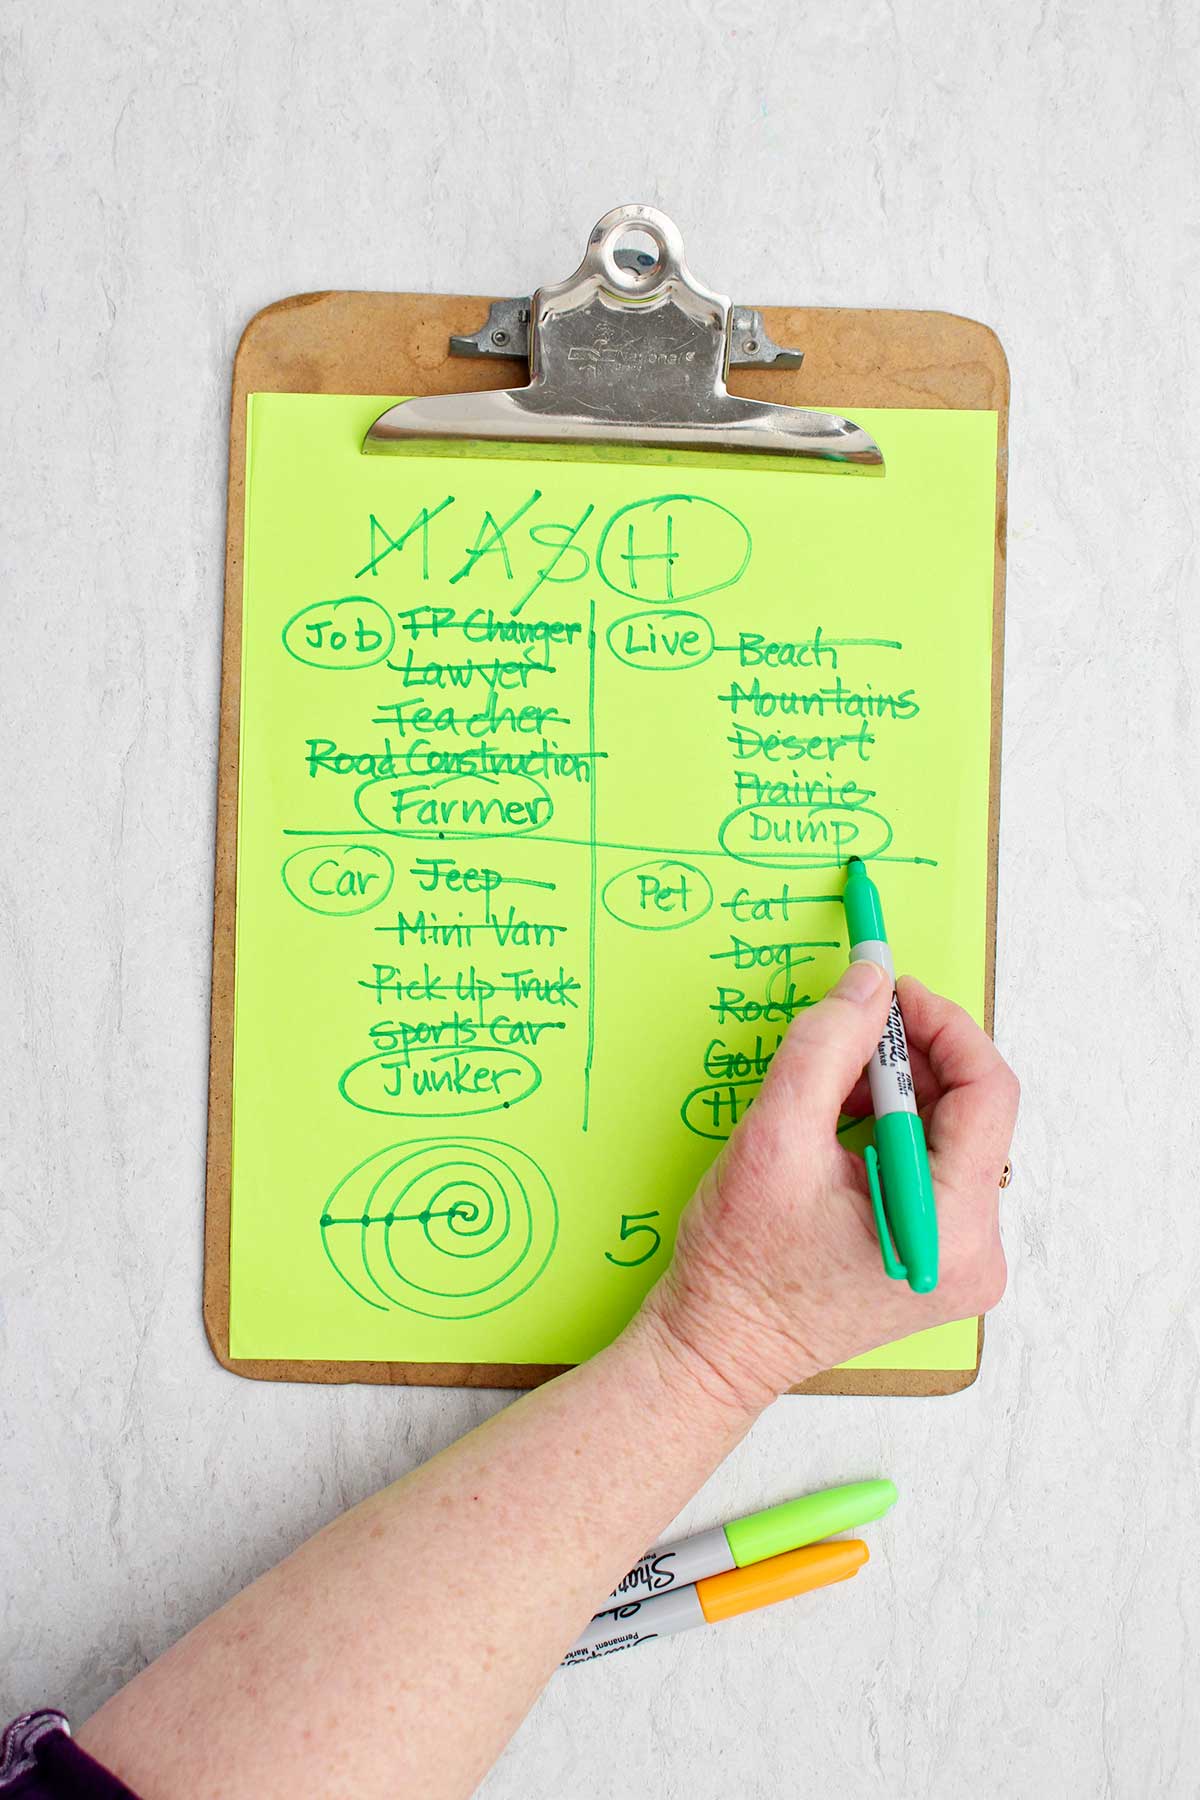 MASH
Job
TP Changer
Lawyer
Teacher
Road Construction
Farmer
Live
Beach
Mountains
Desert
Prairie
Dump
Car
Jeep
Mini Van
Pick Up Truck
Sports Car
Junker
Pet
Cat
Dog
Rock
5
Sharpie
FINE POINT
Permanent